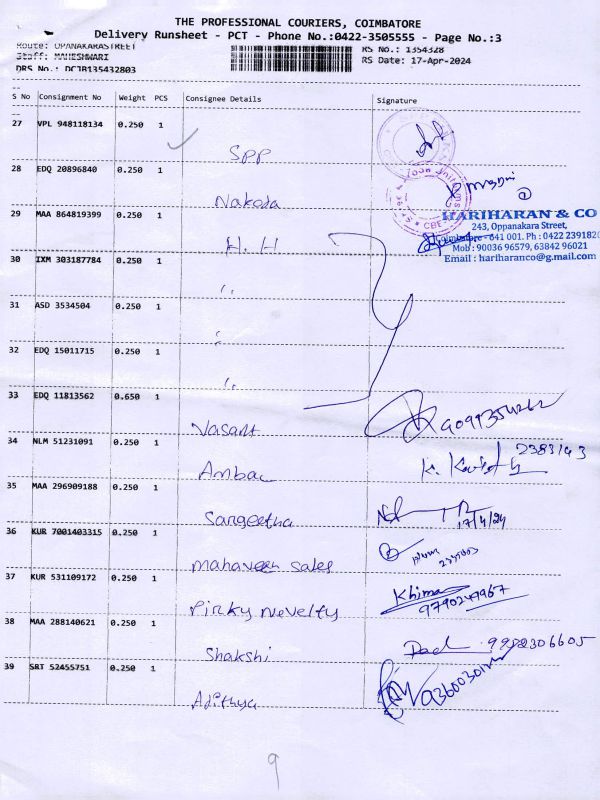 THE PROFESSIONAL COURIERS, COIMBATORE
Delivery Runsheet - PCT - Phone No.:0422-3505555 - Page No.:3
Route: OPANAKARASTREET
RS No.: 1354328
Staff: MAHESHWARI
RS Date: 17-Apr-2024
DRS No.: DCJB135432803
S No Consignment No Weight PCS Consignee Details Signature
27 VPL 948118134 0.250 1
SPP
28 EDQ 20896840 0.250 1
Nakoda
29 MAA 864819399 0.250 1
H. H
HARIHARAN & CO
243, Oppanakara Street,
641 001. Ph : 0422 239182
Mob : 90036 96579, 63842 96021
Email : hariharanco@g.mail.com
30 IXM 303187784 0.250 1
"
31 ASD 3534504 0.250 1
"
32 EDQ 15011715 0.250 1
"
33 EDQ 11813562 0.650 1
Vasant
34 NLM 51231091 0.250 1
Ambac
2383143
35 MAA 296909188 0.250 1
Sangeetha
17/4/24
36 KUR 7001403315 0.250 1
mahaveer sales
37 KUR 531109172 0.250 1
Pinky Novelty
Khima
9790249967
38 MAA 288140621 0.250 1
Shakshi
9952306605
39 SRT 52455751 0.250 1
Adithya
9